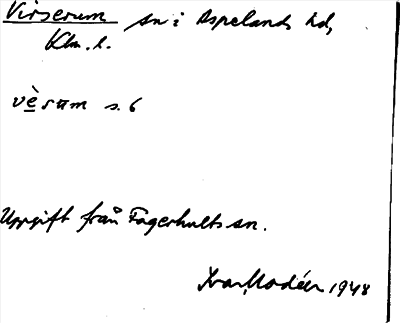 Virserum sn i Aspelands hd,
Klm. l.
vèrsum s. 6
Uppgift från Fagerhults sn.
Ivar Modéer 1948